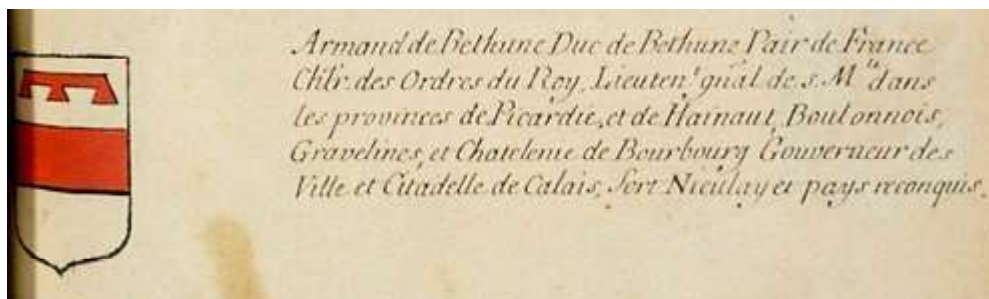 Armand de Bethune Duc de Bethune Pair de France
Chlr. des Ordres du Roy, Lieuten.t gnãl de s. M.té dans
les provinces de Picardie, et de Hainaut, Boulonnois,
Gravelines, et Chatelenie de Bourbourg Gouverneur des
Ville et Citadelle de Calais, fort Nieulay et pays reconquis.